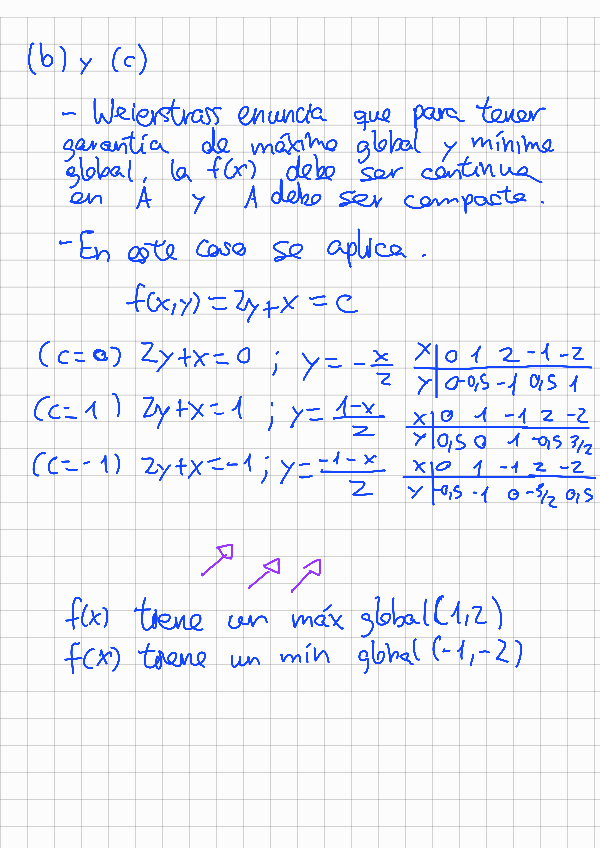 (b) y (c)
- Weierstrass enuncia que para tener
garantía de máximo global y mínimo
global, la f(x) debe ser continua
en A y A debe ser compacto.
- En este caso se aplica.
f(x,y) = 2y+x = c
(c=0) 2y+x=0 ; y = -x/2
x | 0 1 2 -1 -2
y | 0 -0,5 -1 0,5 1
(c=1) 2y+x=1 ; y = (1-x)/2
x | 0 1 -1 2 -2
y | 0,5 0 1 -0,5 3/2
(c=-1) 2y+x=-1 ; y = (-1-x)/2
x | 0 1 -1 2 -2
y | -0,5 -1 0 -3/2 0,5
f(x) tiene un máx global (1,2)
f(x) tiene un mín global (-1,-2)